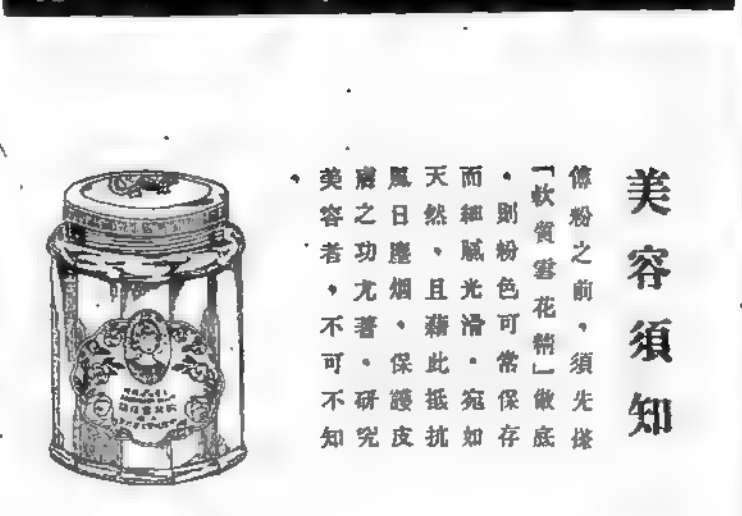 美容須知
傅粉之前，須先搽
「軟質雪花精」做底
，則粉色可常保存
而細膩光滑。宛如
天然，且藉此抵抗
風日塵烟，保護皮
膚之功尤著。研究
美容者，不可不知
。